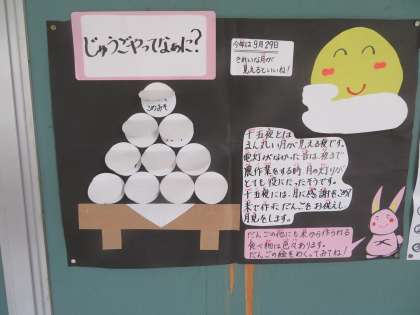 じゅうごやってなぁに?
今年は9月29日
きれいな月が
見えるといいね!
こめみそ
十五夜とは
まん丸い月が見える夜です。
電灯がなかった昔は、夜まで
農作業をする時、月の灯りが
とても役にたったそうです。
十五夜には、月に感謝をこめて
米で作っただんごをお供えし
月見をします。
だんごの他にも米から作られる
食べ物は色々あります。
だんごの絵をめくってみてね!